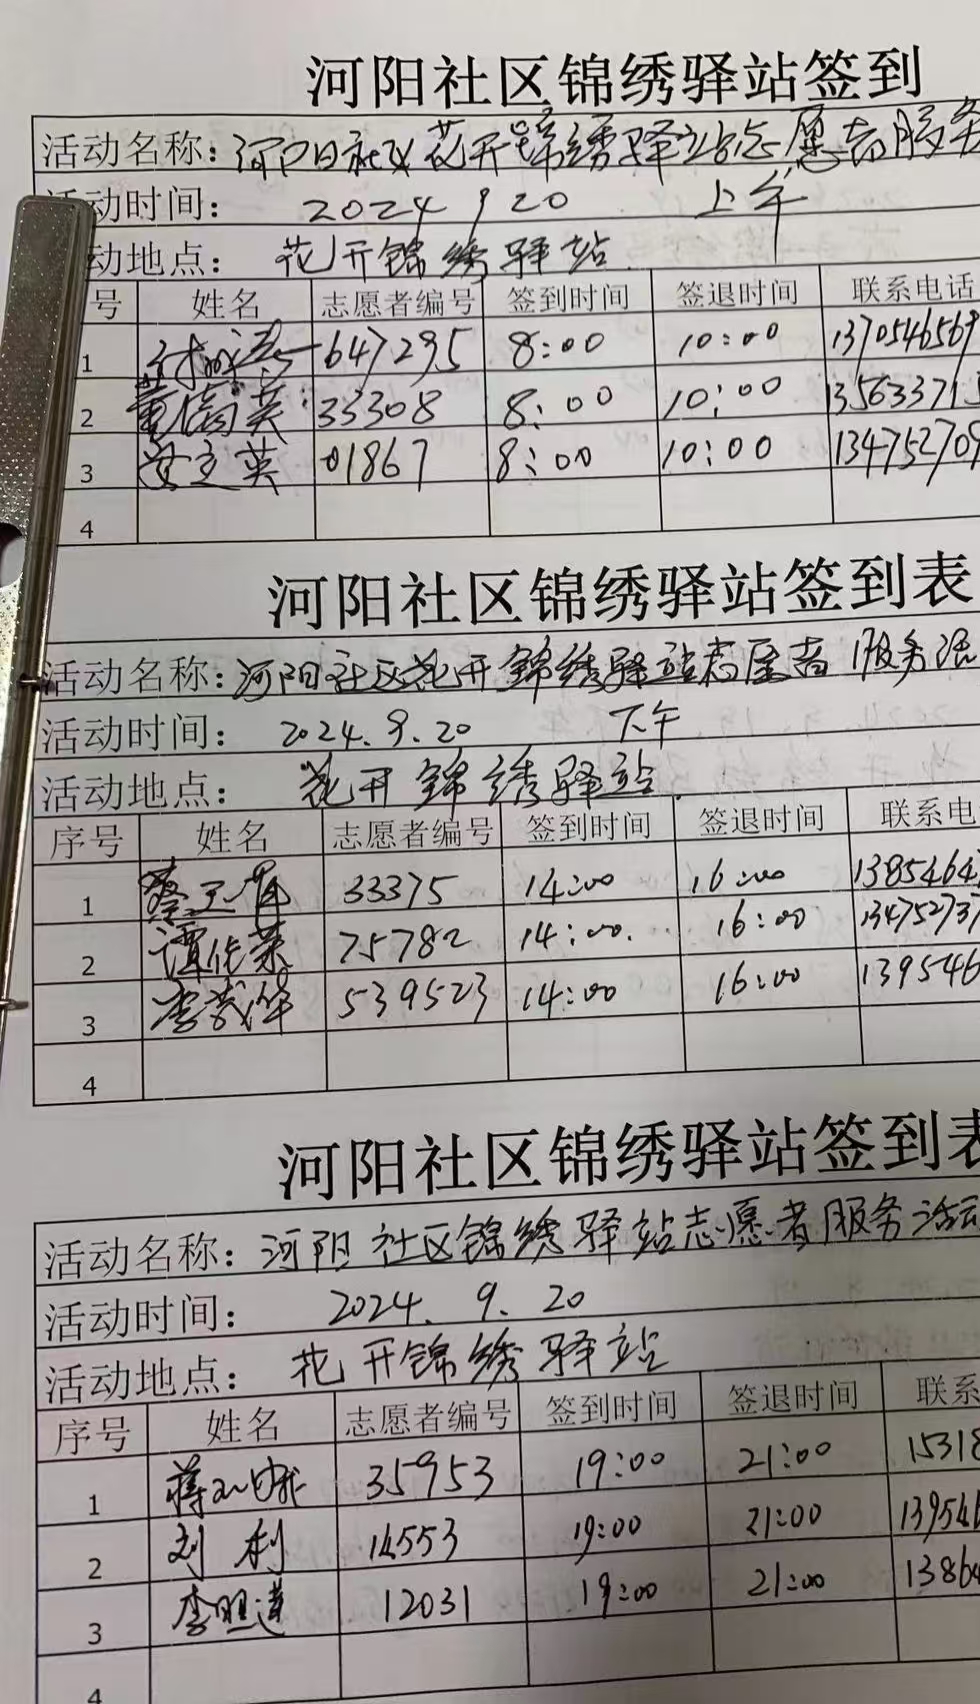 河阳社区锦绣驿站签到
活动名称：河阳社区花开锦绣驿站志愿者服务
动时间： 2024 9 20 上午
动地点： 花开锦绣驿站
号 姓名 志愿者编号 签到时间 签退时间 联系电话
1 647295 8:00 10:00 137054656
2 董信英 33308 8:00 10:00 13563371
3 英 01867 8:00 10:00 13475270
4
河阳社区锦绣驿站签到表
活动名称：河阳社区花开锦绣驿站志愿者服务活
活动时间： 2024.9.20 下午
活动地点： 花开锦绣驿站
序号 姓名 志愿者编号 签到时间 签退时间 联系电
1 蔡 33375 14:00 16:00 1385464
2 谭作荣 75782 14:00 16:00 13475273
3 李 华 539523 14:00 16:00 139546
4
河阳社区锦绣驿站签到表
活动名称：河阳社区锦绣驿站志愿者服务活动
活动时间： 2024.9.20
活动地点： 花开锦绣驿站
序号 姓名 志愿者编号 签到时间 签退时间 联系
1 蒋 35953 19:00 21:00 15318
2 刘利 14553 19:00 21:00 13954
3 李明道 12031 19:00 21:00 13864
4